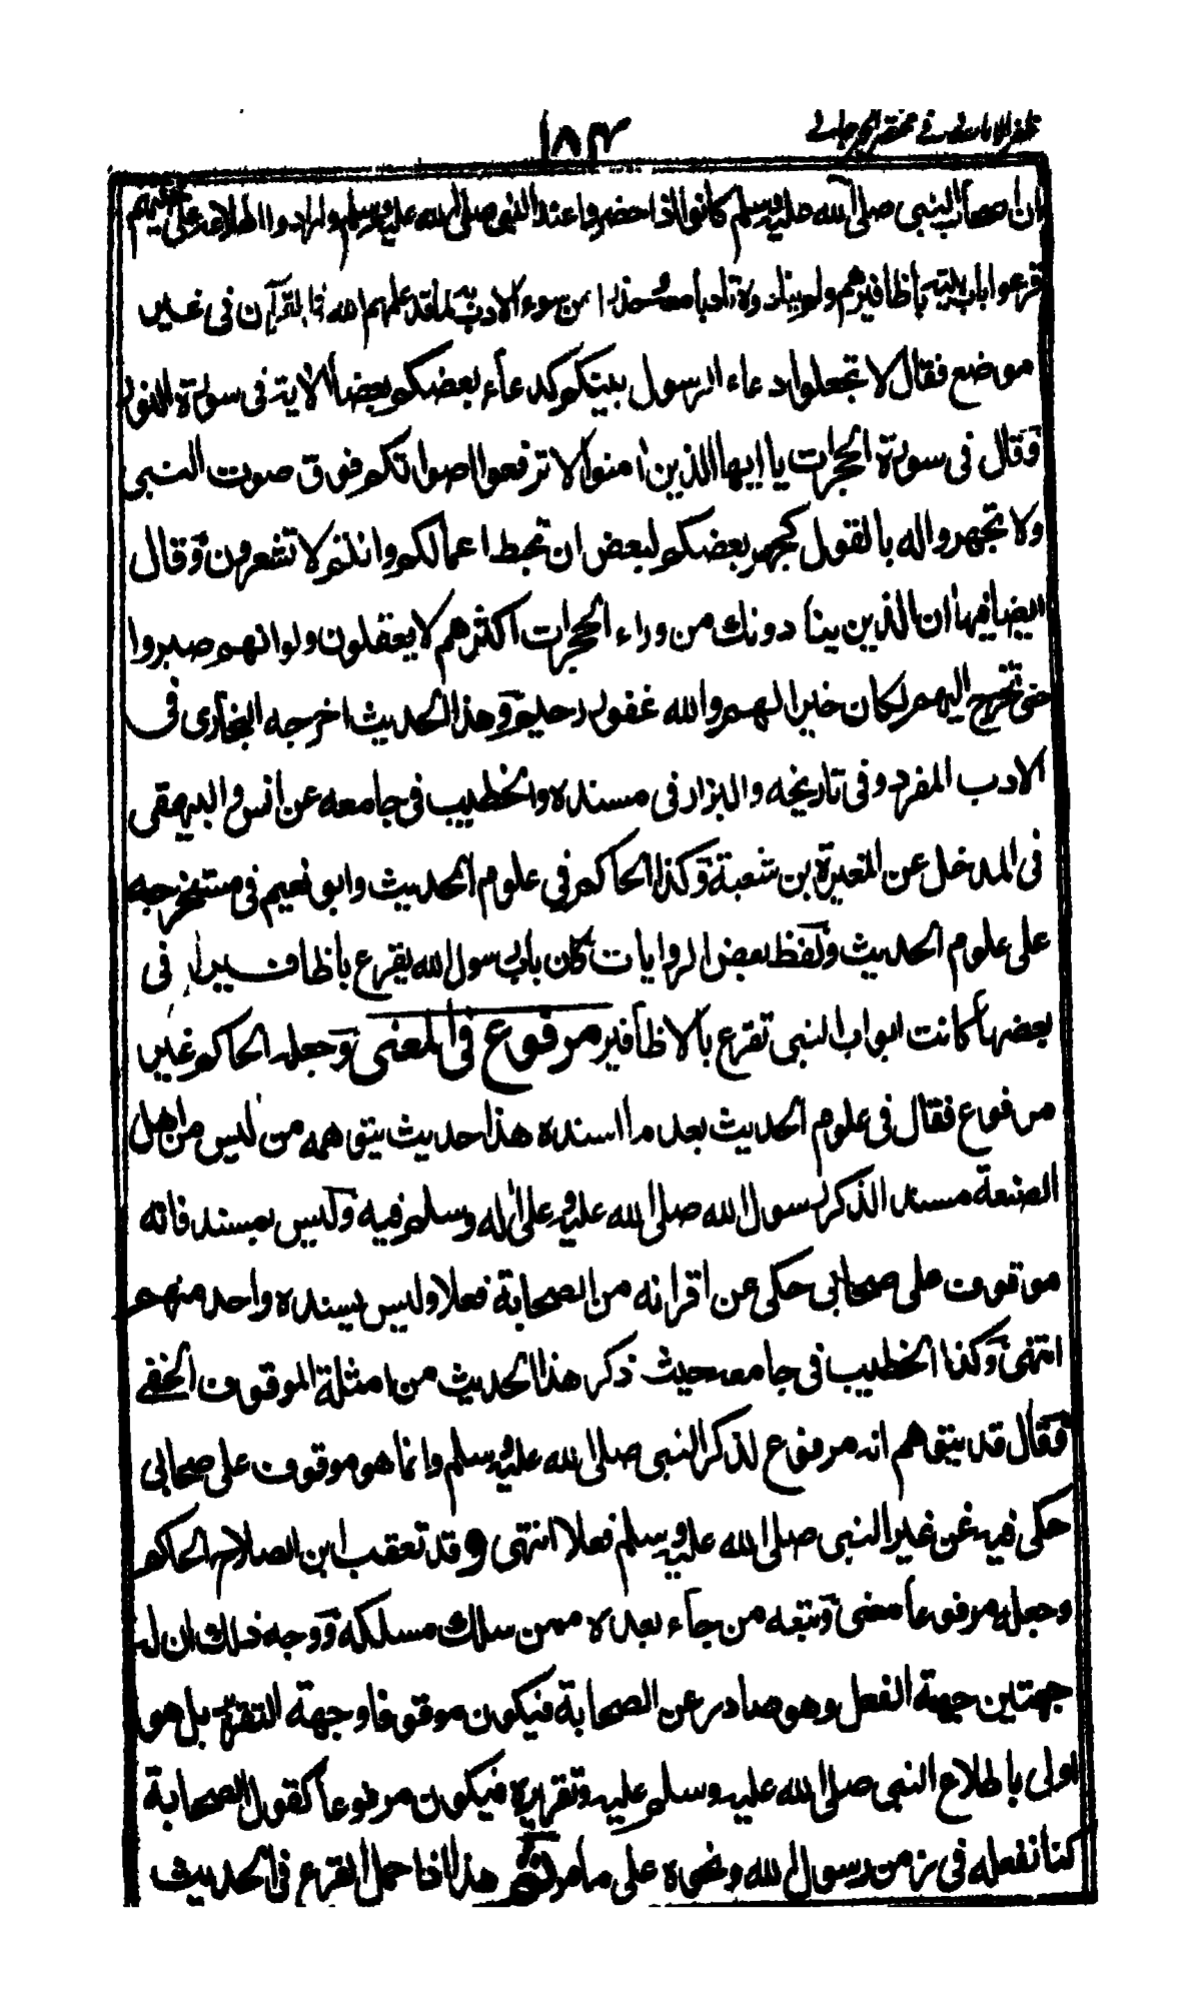 ظفر الاماني في مختصر الجرجاني
١٨٣
ان اصحاب النبي صلى الله عليه وسلم كانوا اذا حضروا عند النبي صلى الله عليه وسلم وارادوا اطلاعه على مجيئهم
قرعوا باب بيته بأظافيرهم ولم ينادوه تأدبا من سوء الادب لما قد علمهم الله تعالى القرآن في غير
موضع فقال لا تجعلوا دعاء الرسول بينكم كدعاء بعضكم بعضا الآية في سورة النور
وقال في سورة الحجرات يا ايها الذين آمنوا لا ترفعوا اصواتكم فوق صوت النبي
ولا تجهروا له بالقول كجهر بعضكم لبعض ان تحبط اعمالكم وانتم لا تشعرون وقال
ايضا فيها ان الذين ينادونك من وراء الحجرات اكثرهم لا يعقلون ولو انهم صبروا
حتى تخرج اليهم لكان خيرا لهم والله غفور رحيم وهذا الحديث اخرجه البخاري في
الادب المفرد وفي تاريخه والبزار في مسنده والخطيب في جامعه عن انس والبيهقي
في المدخل عن المغيرة بن شعبة وكذا الحاكم في علوم الحديث وابو نعيم في مستخرجه
على علوم الحديث ولفظ بعض الروايات كان باب رسول الله يقرع بأظافير وفي
بعضها كانت ابواب النبي تقرع بالاظافير مرفوع في المعنى وجعله الحاكم غير
مرفوع فقال في علوم الحديث بعد ما اسنده هذا حديث يتوهمه من ليس من اهل
الصنعة مسندا لذكر رسول الله صلى الله عليه وعلى آله وسلم فيه وليس بمسند فانه
موقوف على صحابي حكى عن اقرانه من الصحابة فعلا وليس يسنده واحد منهم
انتهى وكذا الخطيب في جامعه حيث ذكر هذا الحديث من امثلة الموقوف الخفي
فقال قد يتوهم انه مرفوع لذكر النبي صلى الله عليه وسلم وانما هو موقوف على صحابي
حكى فيه عن غير النبي صلى الله عليه وسلم فعلا انتهى وقد تعقب ابن الصلاح الحاكم
وجعله مرفوعا معنى وتبعه من جاء بعده ممن سلك مسلكه ووجه ذلك ان له
جهتين جهة الفعل وهو صادر عن الصحابة فيكون موقوفا وجهة التقرير بل هو
اولى باطلاع النبي صلى الله عليه وسلم عليه وتقريره فيكون مرفوعا كقول الصحابة
كنا نفعله في زمن رسول الله ونحوه على ما مر ثم هذا اذا حمل القرع في الحديث